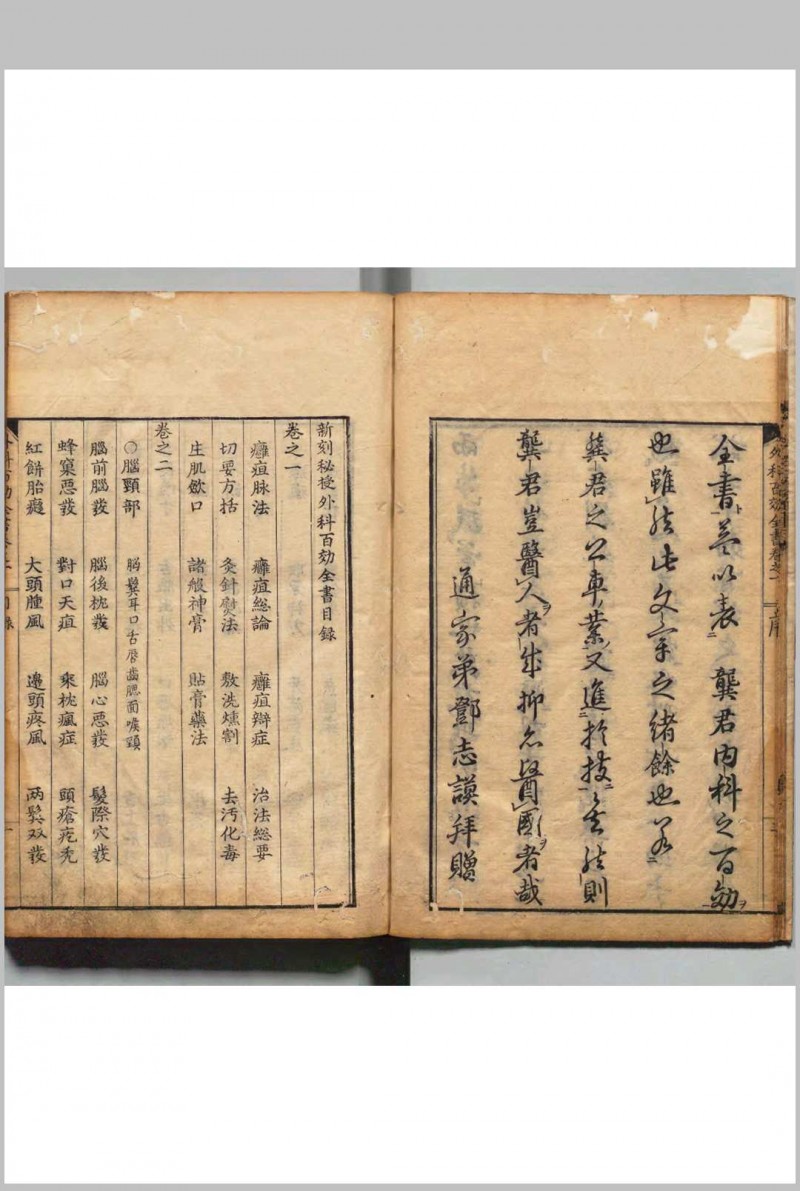 全書蓋以表龔君內科之百効
也雖然此文章之緒餘也若
龔君之公車業又進於技矣然則
龔君豈醫人者哉抑亦醫國者哉
通家弟鄧志謨拜贈
新刻秘授外科百効全書目錄
卷之一
癰疽脉法 癰疽総論 癰疽辯症 治法総要
切要方括 灸針熨法 敷洗燻割 去汚化毒
生肌歛口 諸般神膏 貼膏藥法
卷之二
○腦頸部 腦鬢耳口舌唇齒腮面喉頸
腦前腦發 腦後枕發 腦心惡發 髮際穴發
蜂窠惡發 對口天疽 乘枕瘋症 頭瘡疙禿
紅餅胎癮 大頭腫風 邊頭疼風 兩鬢双發